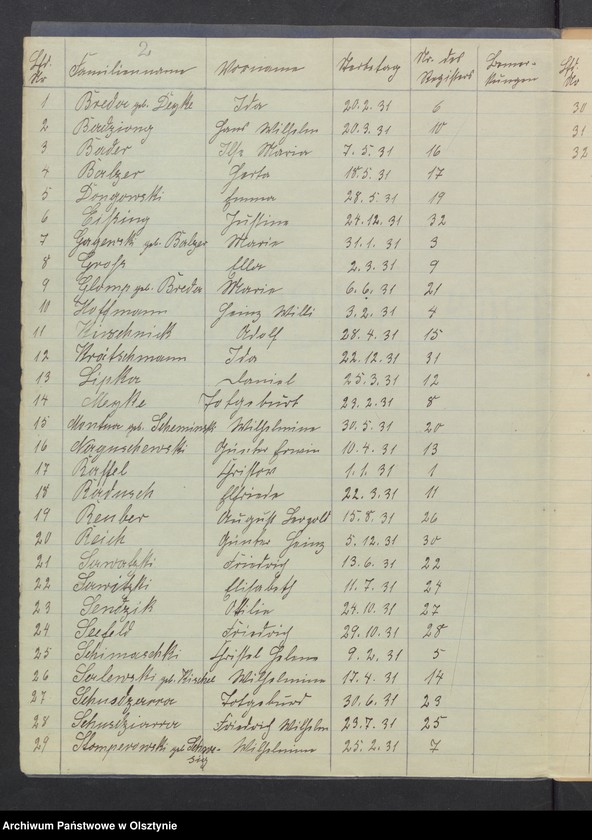 2
Lfd. No Familienname Vorname Sterbetag Nr. des Registers Bemerkungen Lfd. No
1 Breda geb. Depke Ida 20.2.31 6 30
2 Badziong Hans Wilhelm 20.3.31 10 31
3 Bader Ilse Maria 7.5.31 16 32
4 Balzer Herta 18.5.31 17
5 Dongowski Emma 28.5.31 19
6 Eissing Justine 24.12.31 32
7 Gagewski geb. Balzer Marie 31.1.31 3
8 Groß Ella 2.3.31 9
9 Glomp geb. Breda Marie 6.6.31 21
10 Hoffmann Heinz Willi 3.2.31 4
11 Kirschnick Adolf 28.4.31 15
12 Krätschmann Ida 22.12.31 31
13 Lipka Daniel 25.3.31 12
14 Menke Totgeburt 23.2.31 8
15 geb. Scheminski Wilhelmine 30.5.31 20
16 Naguschewski Günter Erwin 10.4.31 13
17 Raffel Christov 1.1.31 1
18 Radusch Elfriede 22.3.31 11
19 Reuber August Leopold 15.8.31 26
20 Reich Günter Heinz 5.12.31 30
21 Sawatzki Friedrich 13.6.31 22
22 Sawitzki Elisabeth 11.7.31 24
23 Sendzik Ottilie 24.10.31 27
24 Seefeld Friedrich 29.10.31 28
25 Schimaschki Christel Helene 9.2.31 5
26 Salewski geb. Kischel Wilhelmine 17.4.31 14
27 Schusdzarra Totgeburt 30.6.31 23
28 Schusdziarra Friedrich Wilhelm 23.7.31 25
29 Stomperowski geb. Wilhelmine 25.2.31 7
Archiwum Państwowe w Olsztynie